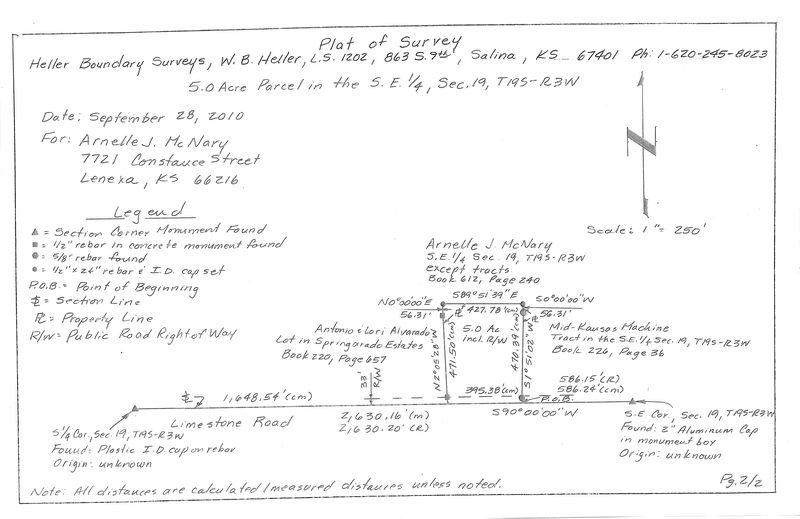 Plat of Survey
Heller Boundary Surveys, W. B. Heller, L.S. 1202, 863 S. 9th, Salina, KS 67401 Ph: 1-620-245-8023
5.0 Acre Parcel in the S.E. 1/4, Sec. 19, T19S-R3W
Date: September 28, 2010
For: Arnelle J. McNary
7721 Constance Street
Lenexa, KS 66216
N
Scale: 1" = 250'
Legend
= Section Corner Monument Found
= 1/2" rebar in concrete monument found
= 5/8" rebar found
= 1/2" x 24" rebar & I.D. cap set
P.O.B. = Point of Beginning
℄ = Section Line
PL = Property Line
R/W = Public Road Right of Way
Arnelle J. McNary
S.E. 1/4 Sec. 19, T19S-R3W
except tracts
Book 612, Page 240
N0°00'00"E
56.31'
S89°51'39"E
PL 427.78'(cm)
S0°00'00"W
56.31'
Antonio & Lori Alvarado
Lot in Springarado Estates
Book 220, Page 657
N2°05'28"W
471.50'(cm)
5.0 Ac
incl. R/W
470.39'(cm)
S1°51'02"W
Mid-Kansas Machine
Tract in the S.E. 1/4 Sec. 19, T19S-R3W
Book 226, Page 36
33'
R/W
℄ 1,648.54' (cm)
395.38'(cm)
586.15'(R)
586.24'(cm)
P.O.B.
Limestone Road
2,630.16' (m)
2,630.20' (R)
S90°00'00"W
S 1/4 Cor., Sec. 19, T19S-R3W
Found: Plastic I.D. cap on rebar
Origin: unknown
S.E. Cor., Sec. 19, T19S-R3W
Found: 2" Aluminum Cap
in monument box
Origin: unknown
Note: All distances are calculated/measured distances unless noted.
Pg. 2/2